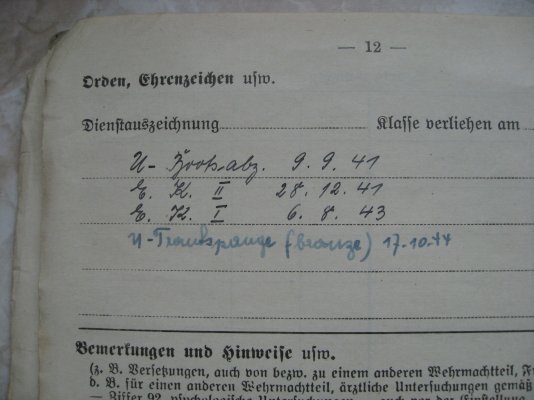 — 12 —
Orden, Ehrenzeichen usw.
Dienstauszeichnung Klasse verliehen am
U-Bootsabz. 9. 9. 41
E. K. II 28. 12. 41
E. K. I 6. 8. 43
U-Frontspange (bronze) 17.10.44
Bemerkungen und Hinweise usw.
(z. B. Versetzungen, auch von bezw. zu einem anderen Wehrmachtteil,
d. B. für einen anderen Wehrmachtteil, ärztliche Untersuchungen gemäß
— Ziffer 92, psychologische Untersuchungen — auch vor der Einstellung